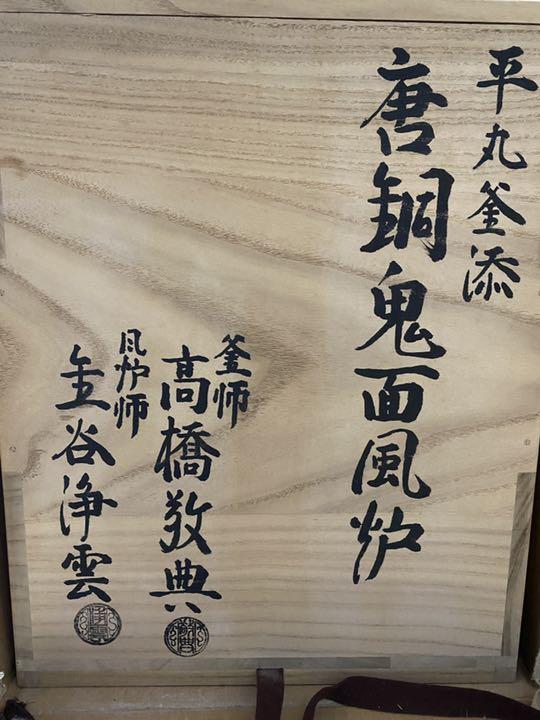 平丸釜添
唐銅鬼面風炉
釜師
高橋敬典
風炉师
金谷浄雲